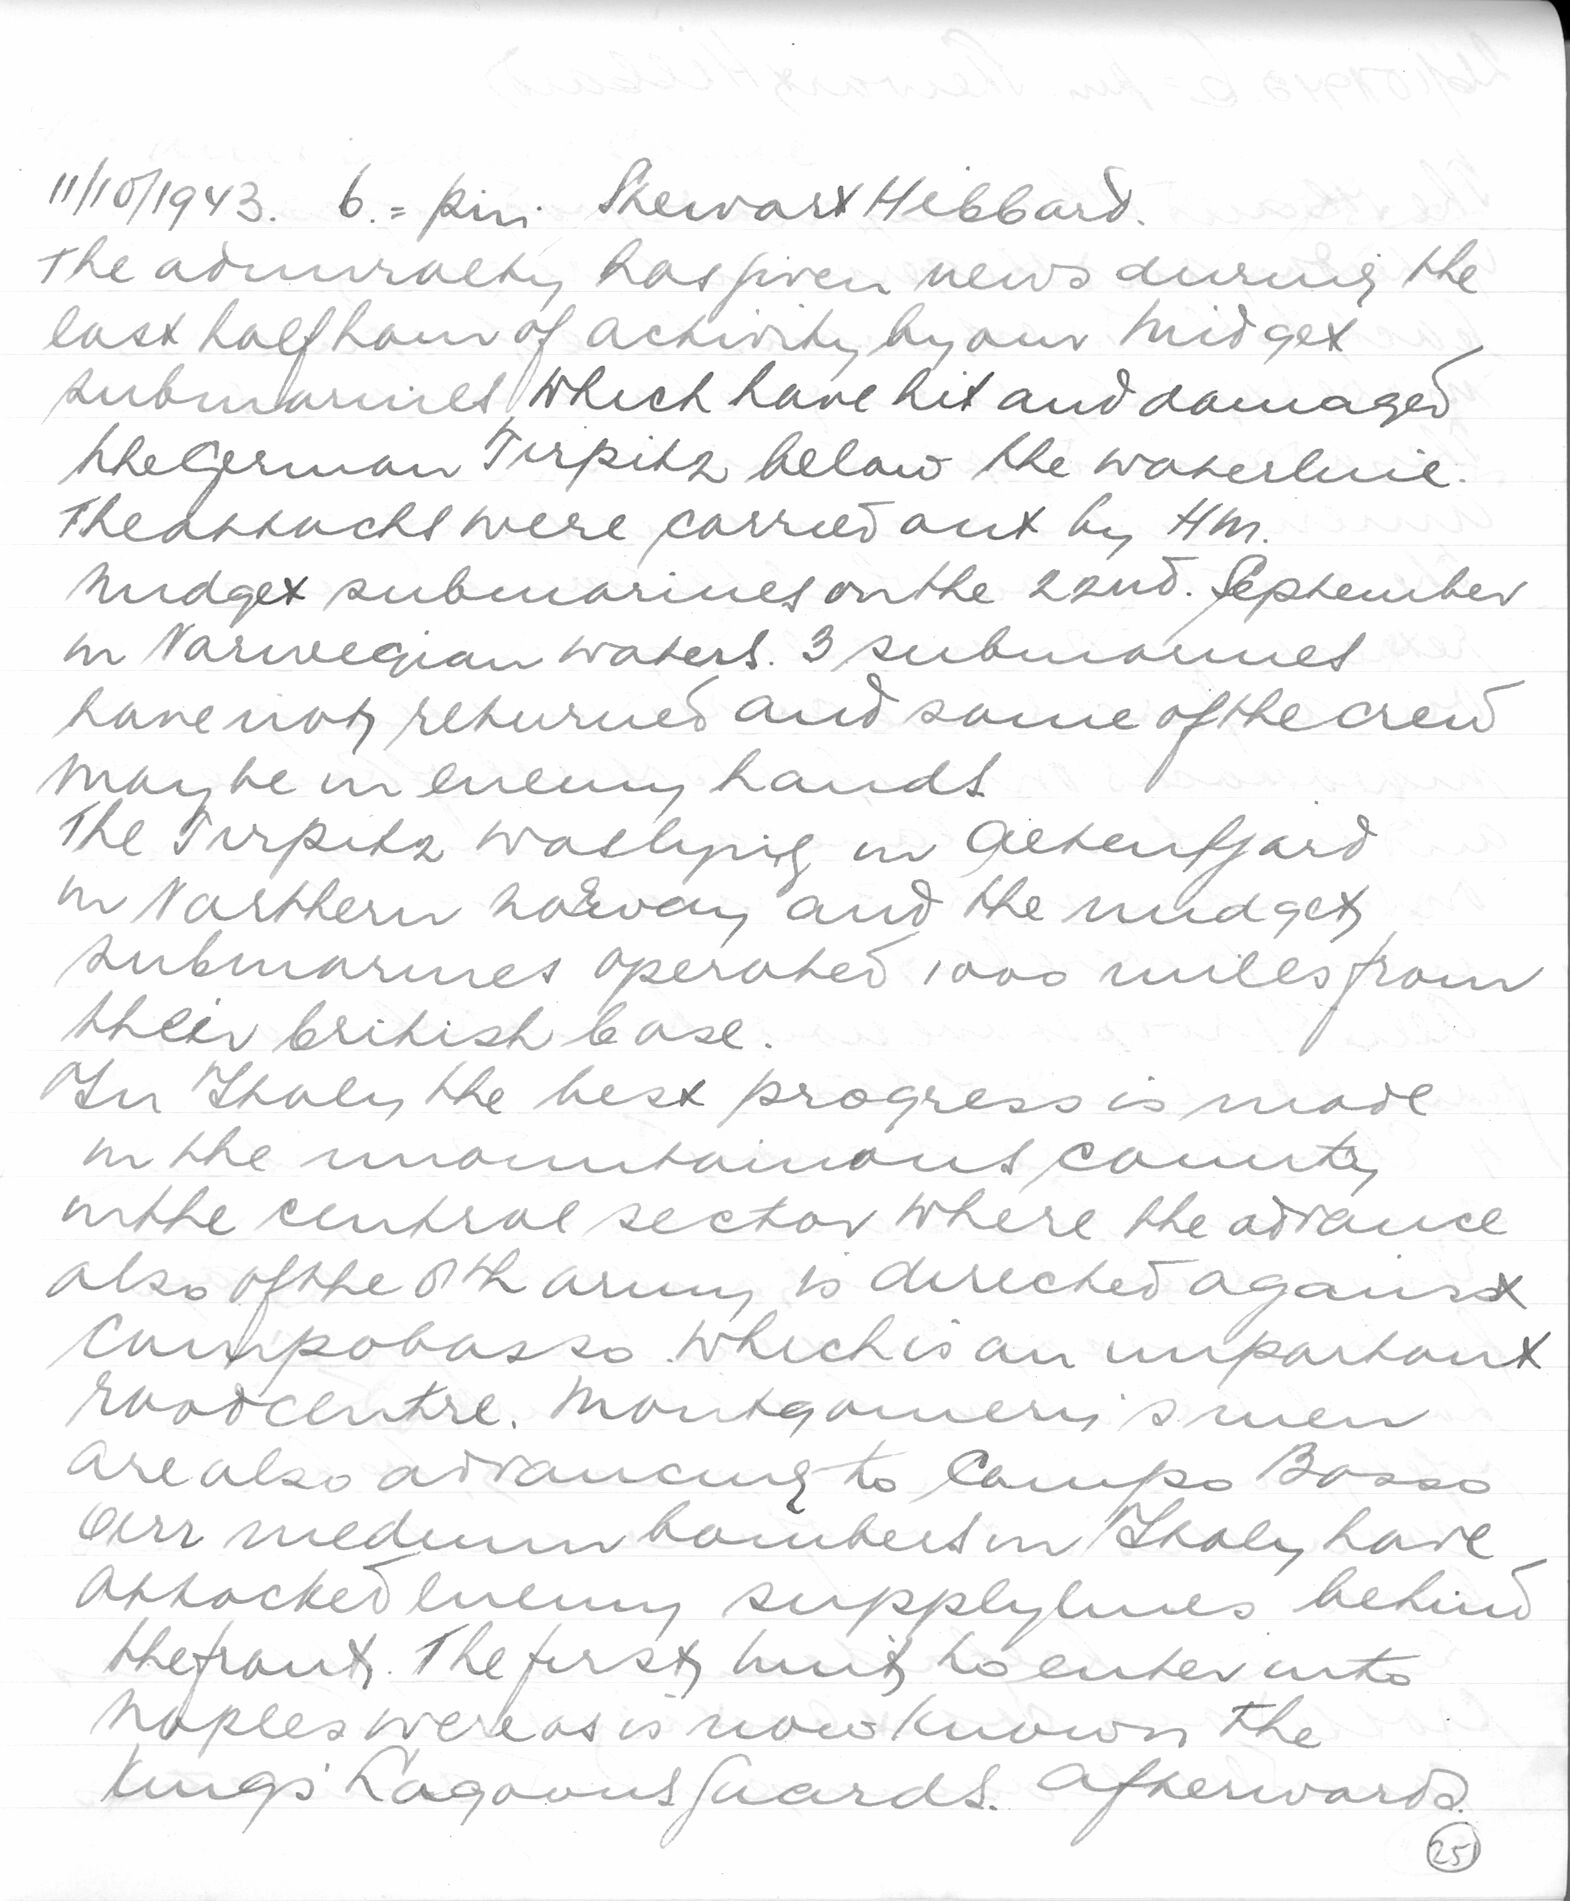 11/10/1943. 6.= pm. Stewart Hibbard.
The admiralty has given news during the
last half hour of activity by our Midget
submarines, which have hit and damaged
the German Tirpitz below the waterline.
The attacks were carried out by HM.
Midget submarines on the 22nd. September
in Norwegian waters. 3 submarines
have not returned and some of the crew
may be in enemy hands
The Tirpitz was lying in Altenfjord
in Northern Norway and the midget
submarines operated 1000 miles from
their british base.
In Italy the best progress is made
in the mountainous country
in the central sector where the advance
also of the 8th army is directed against
Campobasso which is an important
road centre. Montgomery's men
are also advancing to Campo Basso
Our medium bombers in Italy have
attacked enemy supplylines behind
the front. The first unit to enter into
Naples were as is now known the
Kings Guards. Afterwards.
25